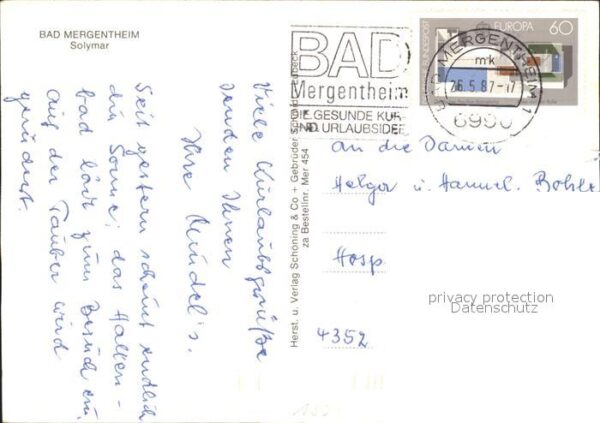 BAD MERGENTHEIM
Solymar
Viele Kurlaubsgrüße
senden Ihnen
Ihre
Seit gestern scheint endlich
die Sonne; das Hallen-
bad lädt zum Besuch ein,
auf der Tauber wird
gerudert.
Herst. u. Verlag Schöning & Co + Gebrüder Schmidt
za Bestellnr. Mer 454
BAD
Mergentheim
DIE GESUNDE KUR-
UND URLAUBSIDEE
BAD MERGENTHEIM 1
mk
26.5.87-17
6990
BUNDESPOST
EUROPA
60
An die Damen
Helga u.
Hosp
4352
privacy protection
Datenschutz